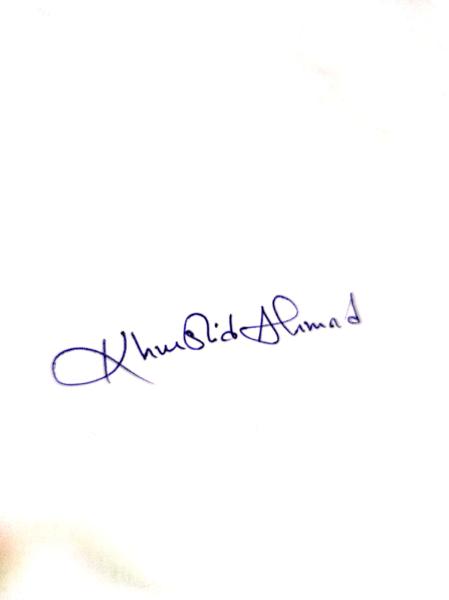 Khurshid Ahmad